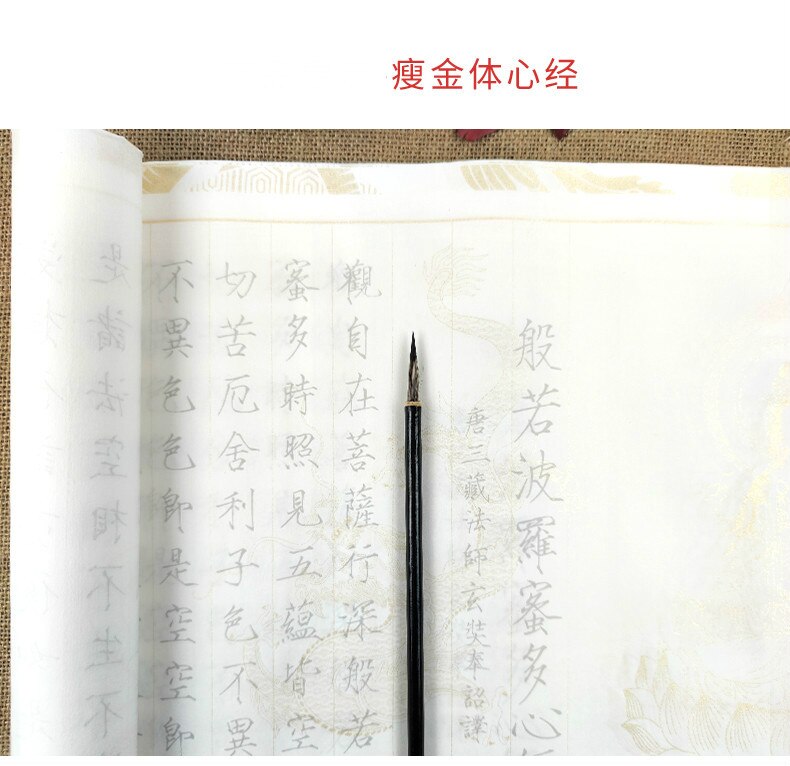 瘦金体心经
般若波羅蜜多心
唐三藏法師玄奘奉詔譯
觀自在菩薩行深般若
蜜多時照見五蘊皆空
切苦厄舍利子色不異
不異色色即是空空即
是諸法空相不生不